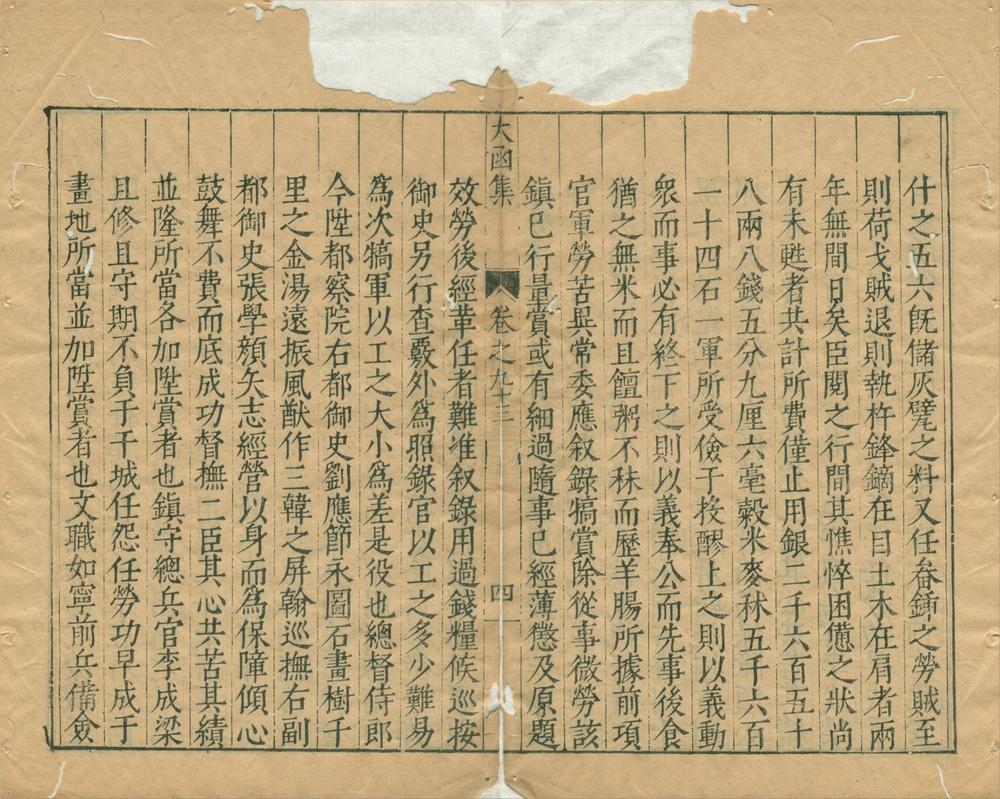 什之五六旣儲灰甓之料又任畚鍤之勞賊至
則荷戈賊退則執杵鋒鏑在目土木在肩者兩
年無間日矣臣閱之行間其憔悴困憊之狀尚
有未甦者共計所費僅止用銀二千六百五十
八兩八錢五分九厘六毫榖米麥秫五千六百
一十四石一軍所受儉于投醪上之則以義動
衆而事必有終下之則以義奉公而先事後食
猶之無米而且饘粥不秣而歷羊腸所據前項
官軍勞苦異常委應叙錄犒賞除從事微勞該
鎮已行量賞或有細過隨事已經薄懲及原題
大函集 卷之九十三 四
效勞後經革任者難准叙錄用過錢糧候巡按
御史另行查覈外爲照錄官以工之多少難易
爲次犒軍以工之大小爲差是役也總督侍郎
今陞都察院右都御史劉應節永圖石畫樹千
里之金湯遠振風猷作三韓之屏翰巡撫右副
都御史張學顏矢志經營以身而爲保障傾心
鼓舞不費而底成功督撫二臣其心共苦其績
並隆所當各加陞賞者也鎮守總兵官李成梁
且修且守期不負于干城任怨任勞功早成于
畫地所當並加陞賞者也文職如寧前兵備僉